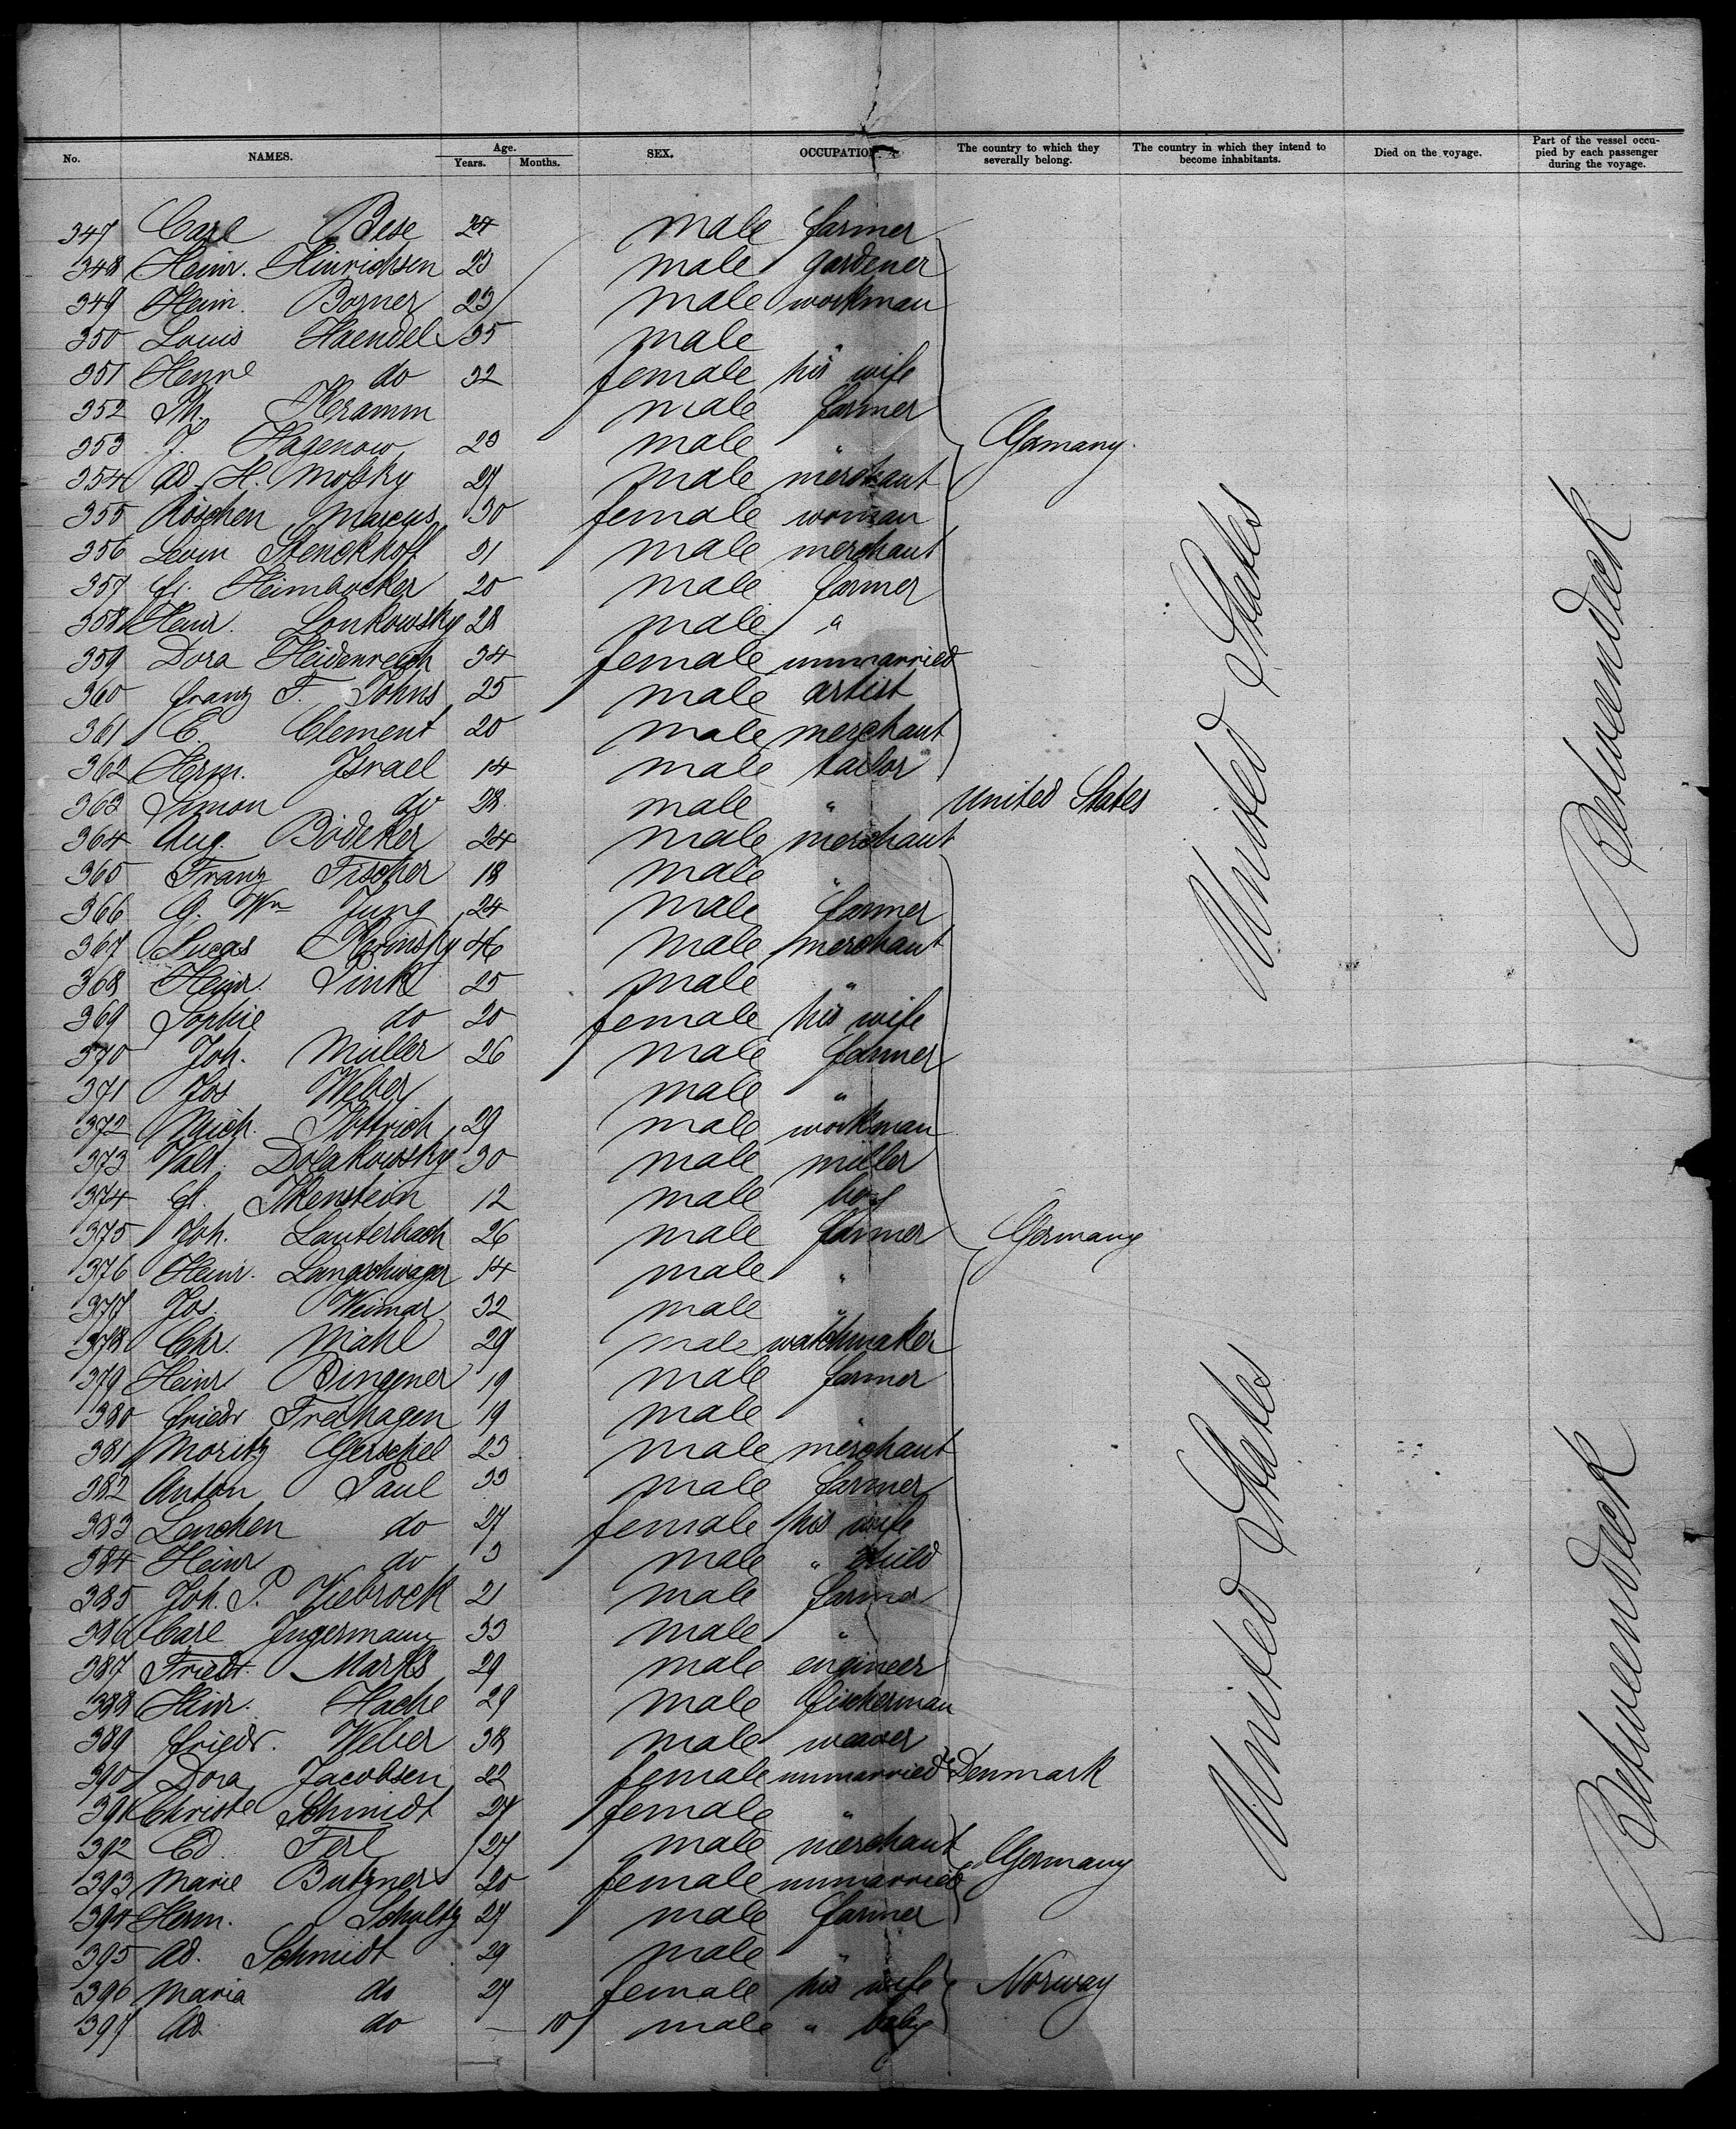 No. NAMES. Age. Years. Months. SEX. OCCUPATION. The country to which they severally belong. The country in which they intend to become inhabitants. Died on the voyage. Part of the vessel occupied by each passenger during the voyage.
347 Carl Bese 24 male farmer
348 Heinr. Hinrichsen 23 male gardener
349 Heinr. Borner 23 male workman
350 Louis Haendel 35 male "
351 Henre do 32 female his wife
352 Ph. Kramm male farmer
353 J. Hagenow 23 male " Germany
354 Ad. H. Mofsky 27 male merchant
355 Röschen Marcus 30 female woman
356 Levin Stenckhoff 31 male merchant
357 Fr. Heimbocker 20 male farmer
358 Heinr. Lonkowsky 28 male "
359 Dora Heidenreich 34 female unmarried
360 Franz F. Johns 25 male artist
361 E. Clement 20 male merchant
362 Herm. Israel 14 male tailor
363 Simon do 28 male " United States
364 Aug. Bödeker 24 male merchant
365 Franz Fischer 18 male "
366 G. Wm Jung 24 male farmer
367 Lucas Korinsky 46 male merchant
368 Heinr. Pink 25 male "
369 Sophie do 20 female his wife
370 Joh. Müller 26 male farmer
371 Jos Weber male "
372 Mich. Pottrich 29 male workman
373 Valt. Dolakowsky 30 male miller
374 Ikenstein 12 male boy
375 Joh. Lauterbach 26 male farmer Germany
376 Heinr. Langschwager 14 male "
377 Jos. Weimar 32 male "
378 Chr. Mahl 29 male watchmaker
379 Heinr Bingener 19 male farmer
380 Friedr Freihagen 19 male "
381 Moritz Gerschel 23 male merchant
382 Anton Paul 33 male farmer
383 Lenchen do 27 female his wife
384 Heinr do 3 male " child
385 Joh. P. Viebrock 21 male farmer
386 Carl Ingermann 33 male "
387 Friedr. Marks 29 male engineer
388 Heinr. Hache 29 male fischerman
389 Friedr. Weber 38 male weaver
390 Dora Jacobsen 22 female unmarried Denmark
391 Christe Schmidt 27 female "
392 Ed. Ferl 27 male merchant Germany
393 Marie Butzner 20 female unmarried
394 Herm. Schultz 27 male farmer
395 Ad. Schmidt 29 male "
396 Maria do 27 female his wife Norway
397 Ad do — 10 male " baby
United States
United States
Betweendeck
Betweendeck